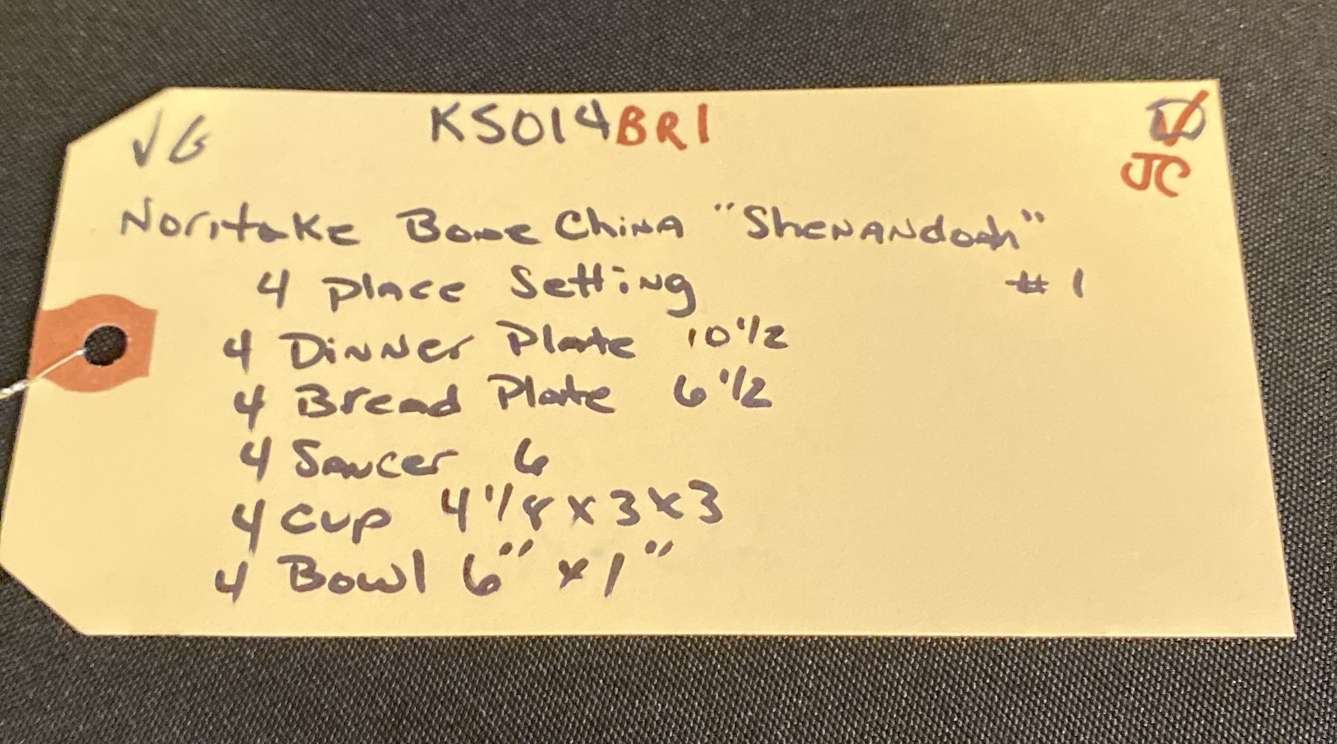 VG KS014BR1
JC
Noritake Bone China "Shenandoah"
4 Place Setting #1
4 Dinner Plate 10 1/2
4 Bread Plate 6 1/2
4 Saucer 6
4 Cup 4 1/8 x 3 x 3
4 Bowl 6" x 1"